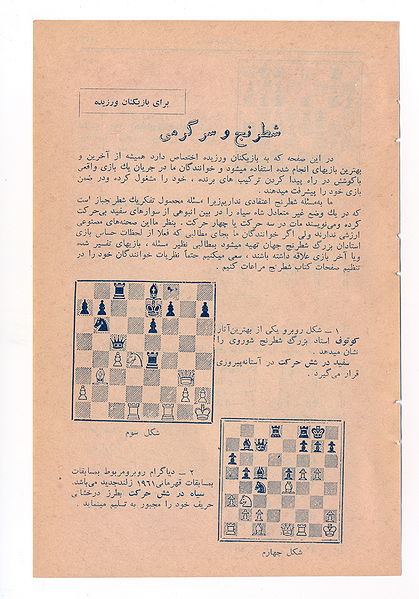 برای بازیکنان ورزیده
شطرنج و سرگرمی
در این صفحه که به بازیکنان ورزیده اختصاص دارد همیشه از آخرین و
بهترین بازیهای انجام شده استفاده میشود و خوانندگان ما در جریان یك بازی واقعی
باکوشش در راه پیدا کردن ترکیب های برنده ، خود را مشغول کرده ودر ضمن
بازی خود را پیشرفت میدهند .
ما به‌مسئله شطرنج اعتقادی نداریم‌زیرا مسئله محصول تفکریك شطرنجباز است
که در یك وضع غیر متعادل شاه سیاه را در بین انبوهی از سوارهای سفید بی‌حرکت
کرده ومی‌نویسد مات در سه حرکت یا چهار حرکت . بنظر ما این صحنه‌های مصنوعی
ارزشی ندارند ولی اگر خوانندگان ما بجای مطالبی که فعلا از لحظات حساس بازی
استادان بزرگ شطرنج جهان تهیه میشود بمطالبی نظیر مسئله ، بازیهای تفسیر شده
ویا آخر بازی علاقه داشته باشند ، سعی میکنیم حتماً نظریات خوانندگان خود را در
تنظیم صفحات کتاب شطرنج مراعات کنیم .
۱ – شکل روبرو یکی از بهترین‌آثار
کوتوف استاد بزرگ شطرنج شوروی را
نشان میدهد .
سفید در شش حرکت در آستانه‌پیروزی
قرار می‌گیرد .
شکل سوم
۲ – دیاگرام روبرومربوط بمسابقات
بمسابقات قهرمانی ۱۹۶۱ زلندجدید می‌باشد.
سیاه در شش حرکت بطرز درخشانی
حریف خود را مجبور به تسلیم مینماید .
شکل چهارم